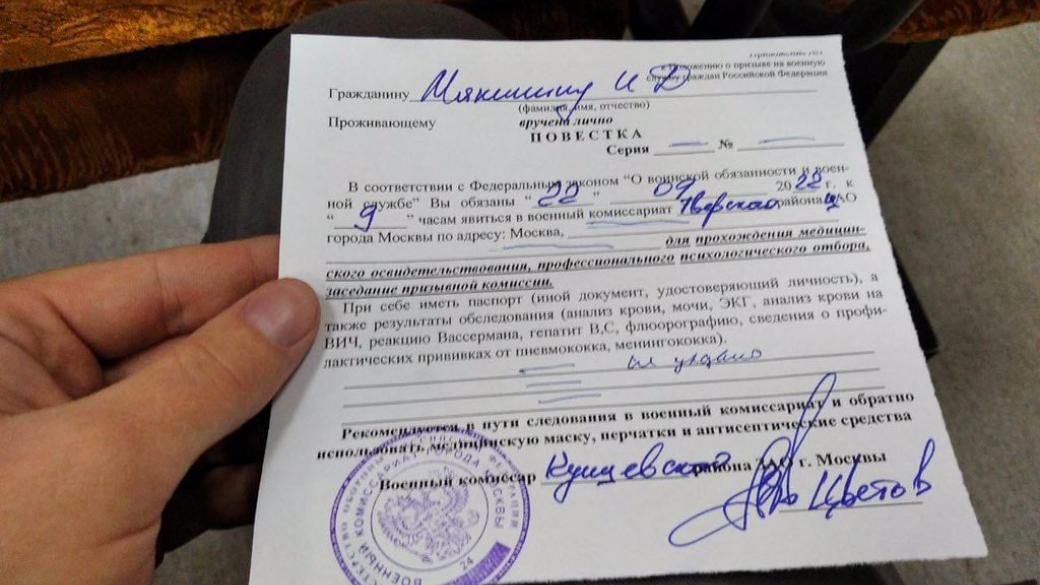 Приложение №1
к Положению о призыве на военную
службу граждан Российской Федерации
Гражданину Мякишину И Д
(фамилия, имя, отчество)
Проживающему вручена лично
ПОВЕСТКА
Серия № 
В соответствии с Федеральным законом "О воинской обязанности и воен-
ной службе" Вы обязаны "22" 09 2022 г. к
"9" часам явиться в военный комиссариат Тверского района ЦАО
города Москвы по адресу: Москва,
для прохождения медицин-
ского освидетельствования, профессионального психологического отбора,
заседание призывной комиссии.
При себе иметь паспорт (иной документ, удостоверяющий личность), а
также результаты обследования (анализ крови, мочи, ЭКГ, анализ крови на
ВИЧ, реакцию Вассермана, гепатит В,С, флюорографию, сведения о профи-
лактических прививках от пневмококка, менингококка).
Рекомендуется в пути следования в военный комиссариат и обратно
использовать медицинскую маску, перчатки и антисептические средства
Военный комиссар Кунцевского района ЗАО г. Москвы
Цветов
ВОЕННЫЙ КОМИССАРИАТ ГОРОДА МОСКВЫ
24